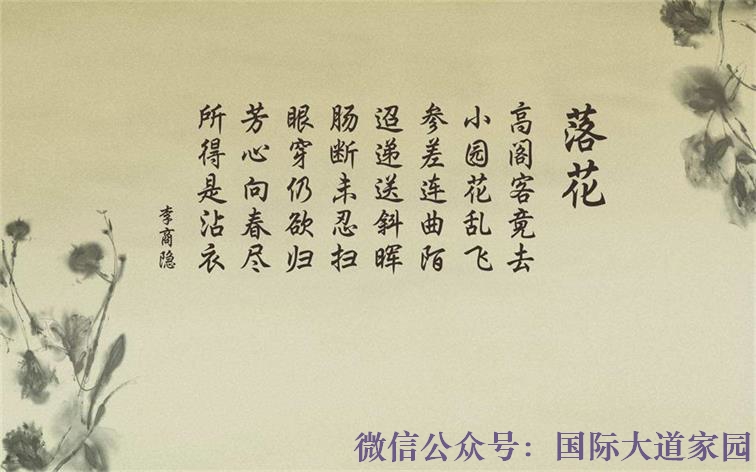 落花
高阁客竟去
小园花乱飞
参差连曲陌
迢递送斜晖
肠断未忍扫
眼穿仍欲归
芳心向春尽
所得是沾衣
李商隐
微信公众号：国际大道家园